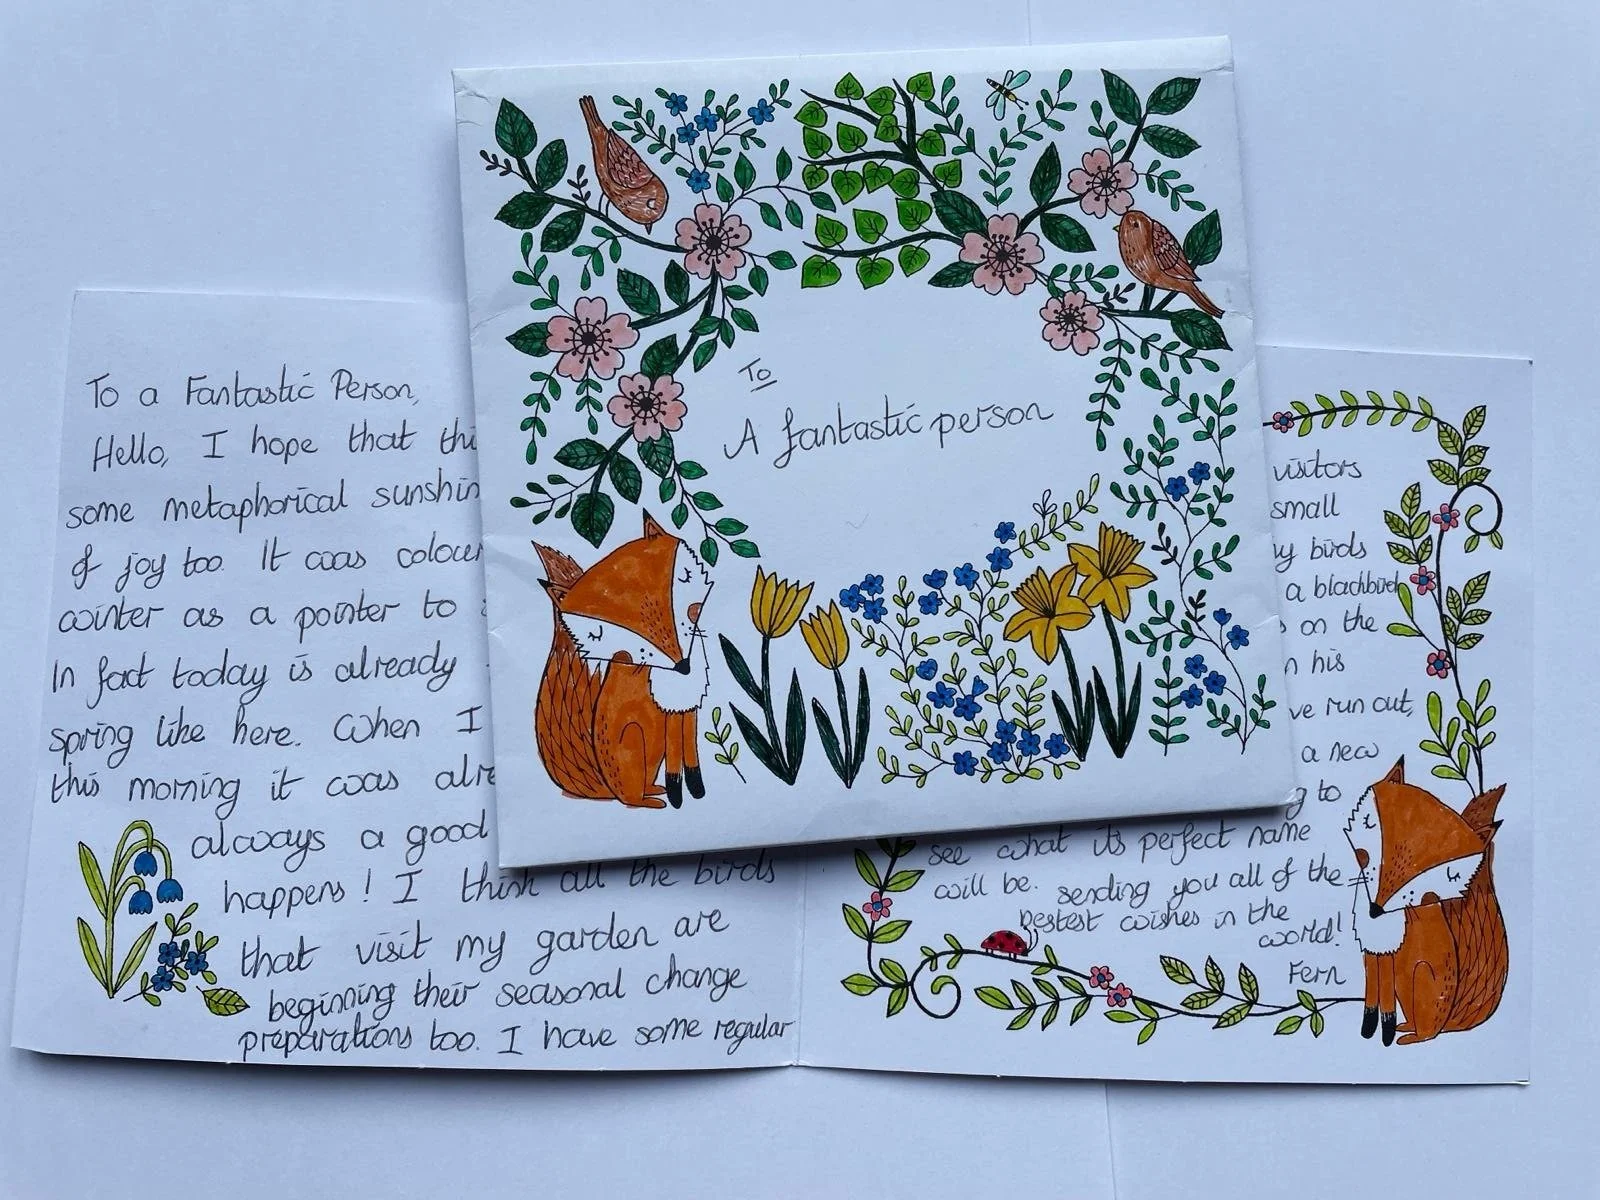 To
A fantastic person
To a Fantastic Person,
Hello, I hope that
some metaphorical
of joy too. It was
winter as a pointer to
In fact today is already
spring like here. When I
this morning it was
always a good
happens! I think all the birds
that visit my garden are
beginning their seasonal change
preparations too. I have some regular
visitors
small
birds
a blackbird
on the
his
run out,
a new
to
see what it's perfect name
will be. sending you all of the
bestest wishes in the
world!
Fern